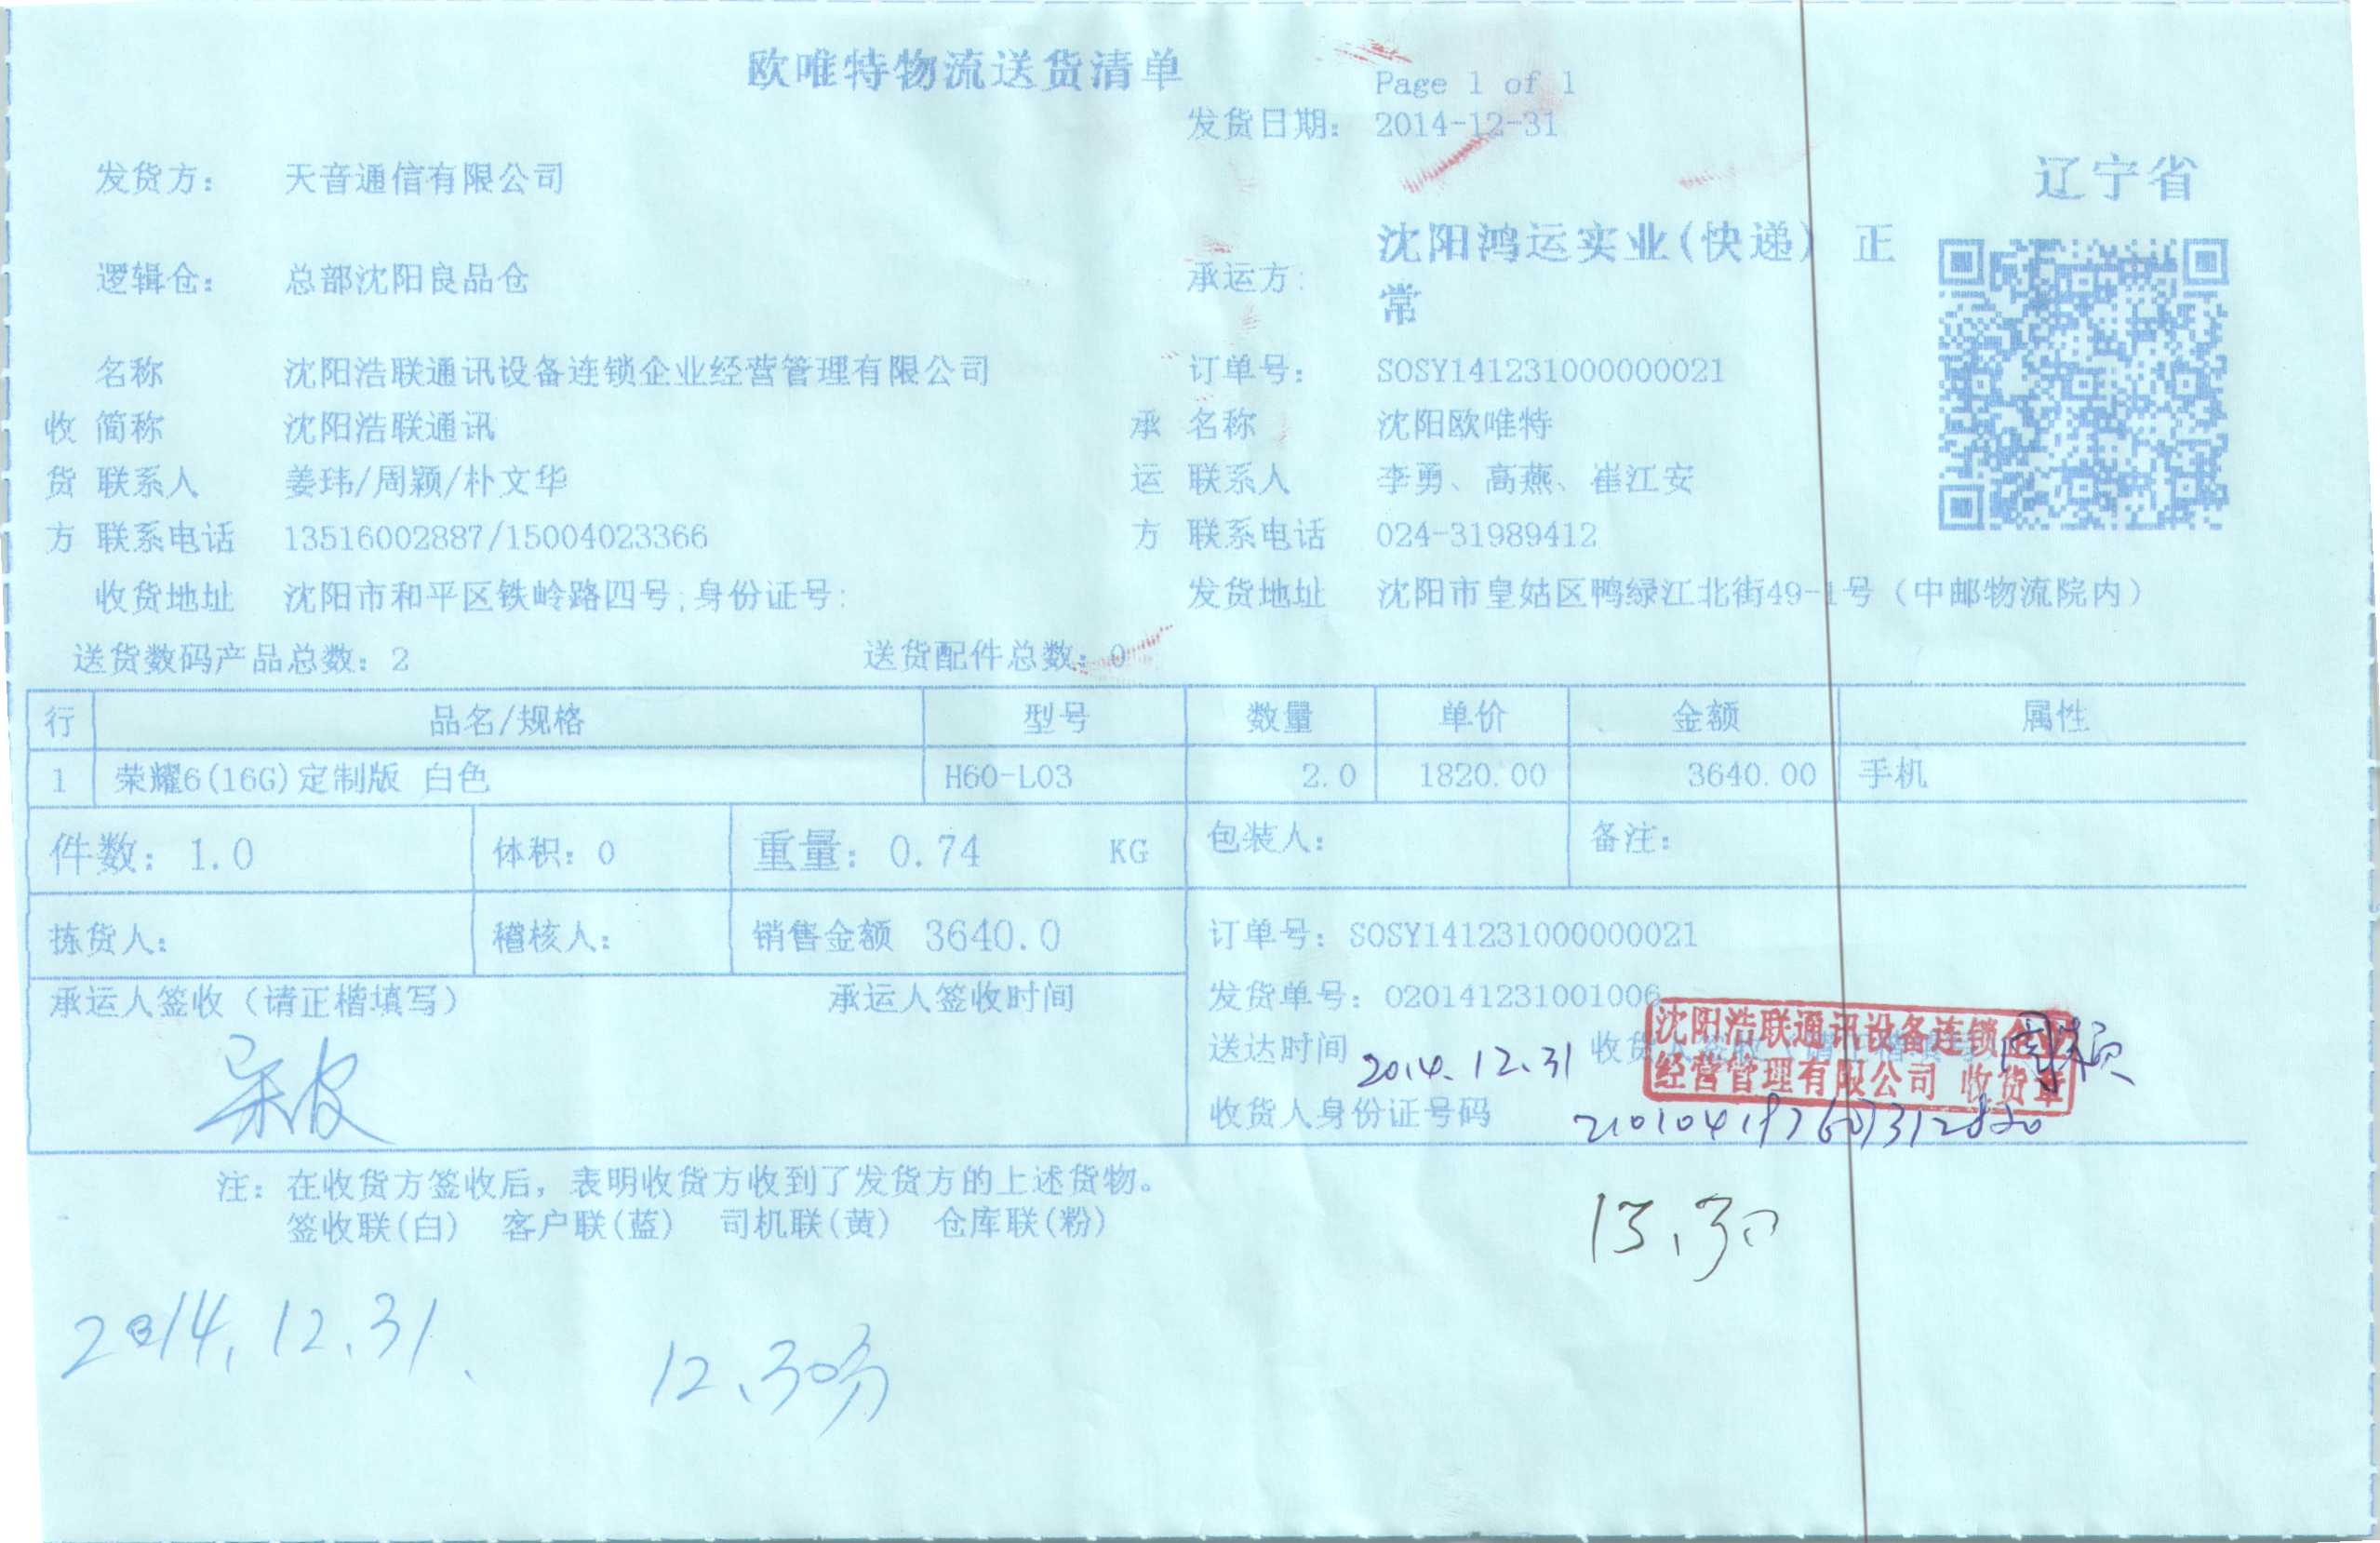 欧唯特物流送货清单
Page 1 of 1
发货日期： 2014-12-31
辽宁省
发货方： 天音通信有限公司
承运方： 沈阳鸿运实业(快递) 正常
逻辑仓： 总部沈阳良品仓
名称 沈阳浩联通讯设备连锁企业经营管理有限公司 订单号： SOSY141231000000021
收 简称 沈阳浩联通讯 承 名称 沈阳欧唯特
货 联系人 姜玮/周颖/朴文华 运 联系人 李勇、高燕、崔江安
方 联系电话 13516002887/15004023366 方 联系电话 024-31989412
收货地址 沈阳市和平区铁岭路四号;身份证号: 发货地址 沈阳市皇姑区鸭绿江北街49-1号（中邮物流院内）
送货数码产品总数：2 送货配件总数：0
行 品名/规格 型号 数量 单价 金额 属性
1 荣耀6(16G)定制版 白色 H60-L03 2.0 1820.00 3640.00 手机
件数：1.0 体积：0 重量：0.74 KG 包装人： 备注：
拣货人： 稽核人： 销售金额 3640.0 订单号：SOSY141231000000021
承运人签收（请正楷填写） 承运人签收时间 发货单号：020141231001006
沈阳浩联通讯设备连锁企业
经营管理有限公司 收货章
送达时间 2014.12.31 周颖
收货人身份证号码
注：在收货方签收后，表明收货方收到了发货方的上述货物。
签收联(白) 客户联(蓝) 司机联(黄) 仓库联(粉)
13.30
2014.12.31.
12.30分